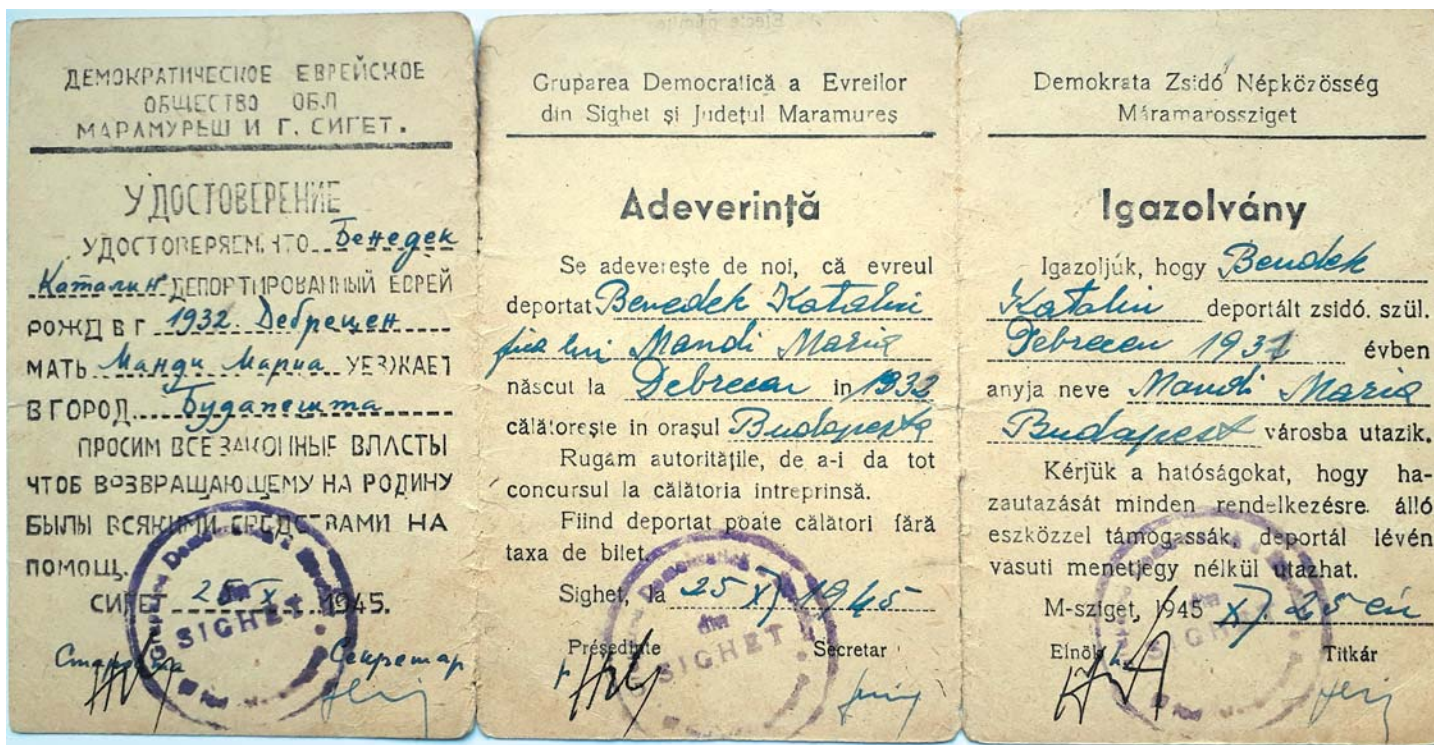 ДЕМОКРАТИЧЕСКОЕ ЕВРЕЙСКОЕ
ОБЩЕСТВО ОБЛ
МАРАМУРЕШ И Г. СИГЕТ.
УДОСТОВЕРЕНИЕ
УДОСТОВЕРЯЕМ, ЧТО Бенедек
Каталин ДЕПОРТИРОВАННЫЙ ЕВРЕЙ
РОЖД В Г 1932. Дебрецен
МАТЬ Манди Мариа УЕЗЖАЕТ
В ГОРОД Будапешта
ПРОСИМ ВСЕ ЗАКОННЫЕ ВЛАСТЫ
ЧТОБ ВОЗВРАЩАЮЩЕМУ НА РОДИНУ
БЫЛЫ ВСЯКИМИ СРЕДСТВАМИ НА
ПОМОЩ.
СИГЕТ 25 X 1945.
Секретар
din
SIGHET
Gruparea Democratică a Evreilor
din Sighet și Județul Maramureș
Adeverință
Se adeverește de noi, că evreul
deportat Benedek Katalin
fica lui Mandi Maria
născut la Debrecen in 1932
călătorește in orașul Budapesta
Rugăm autoritățile, de a-i da tot
concursul la călătoria intreprinsă.
Fiind deportat poate călători fără
taxa de bilet.
Sighet, la 25 X 1945
Președinte Secretar
din
SIGHET
Demokrata Zsidó Népközösség
Máramarossziget
Igazolvány
Igazoljúk, hogy Bendek
Katalin deportált zsidó. szül.
Debrecen 1932 évben
anyja neve Mandi Maria
Budapest városba utazik.
Kérjük a hatóságokat, hogy ha-
zautazását minden rendelkezésre álló
eszközzel támogassák, deportál lévén
vasuti menetjegy nélkül utazhat.
M-sziget, 1945 X. 25 én
Elnök Titkár
din
SIGHET